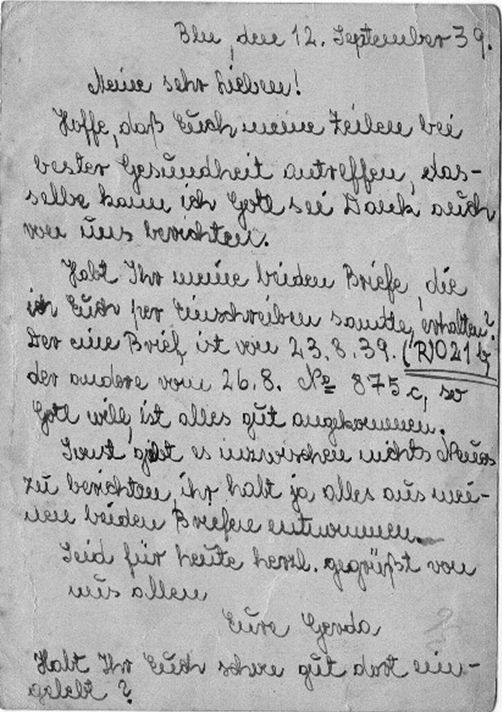 Bln, den 12. September 39.
Meine sehr Lieben!
Hoffe, daß Euch meine Zeilen bei
bester Gesundheit antreffen, das-
selbe kann ich Gott sei Dank auch
von uns berichten.
Habt Ihr meine beiden Briefe, die
ich Euch per Einschreiben sandte, erhalten?
Der eine Brief, ist vom 23.8.39. (R) 021 b,
der andere vom 26.8. No 875 c, so
Gott will, ist alles gut angekommen.
Sonst, gibt es inzwischen nichts Neues
zu berichten, ihr habt ja alles aus mei-
nen beiden Briefen entnommen.
Seid für heute herzl. gegrüßt von
uns allen
Eure Gerda
Habt Ihr Euch schon gut dort ein-
gelebt?